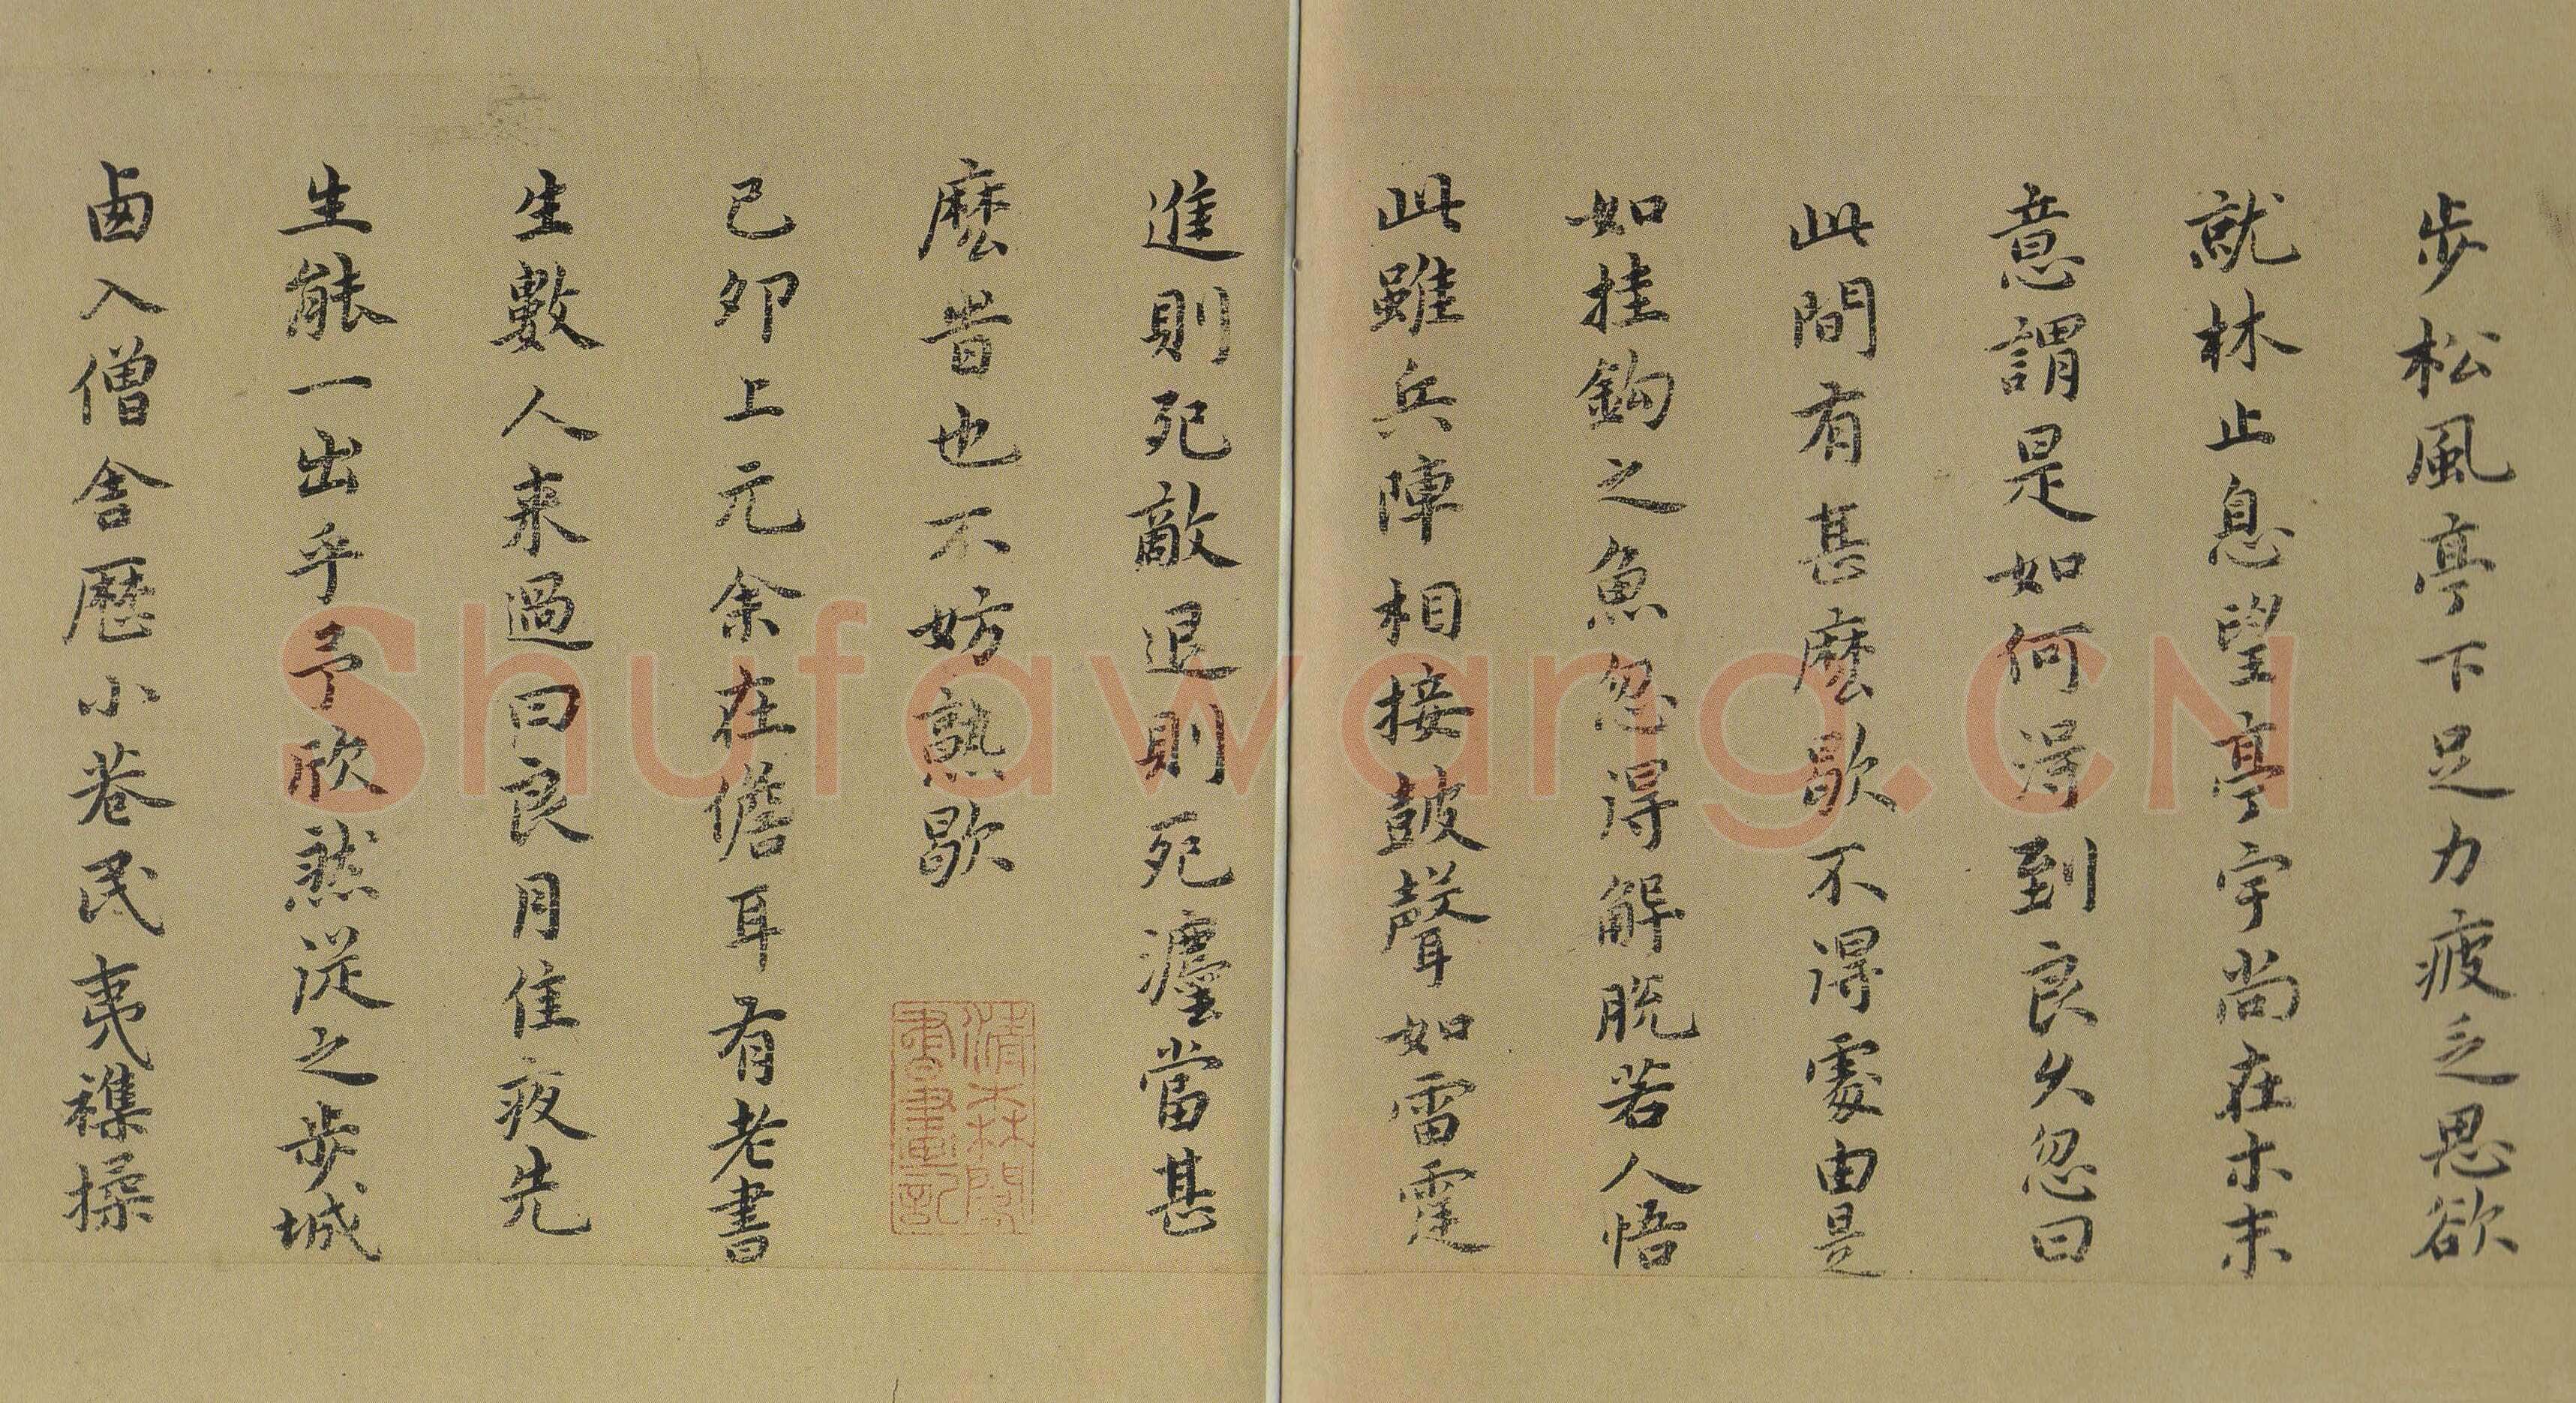 步松風亭下足力疲乏思欲
就林止息望亭宇尚在木末
意謂是如何得到良久忽曰
此間有甚麼歇不得處由是
如挂鈎之魚忽得解脫若人悟
此雖兵陣相接皷聲如雷霆
進則死敵退則死瀍當甚
麼昔也不妨熟歇
清森閣書畫記
己卯上元余在儋耳有老書
生數人来過曰良月佳夜先
生能一出乎予欣然從之步城
西入僧舍歷小巷民夷襍揉
Shufawang.CN